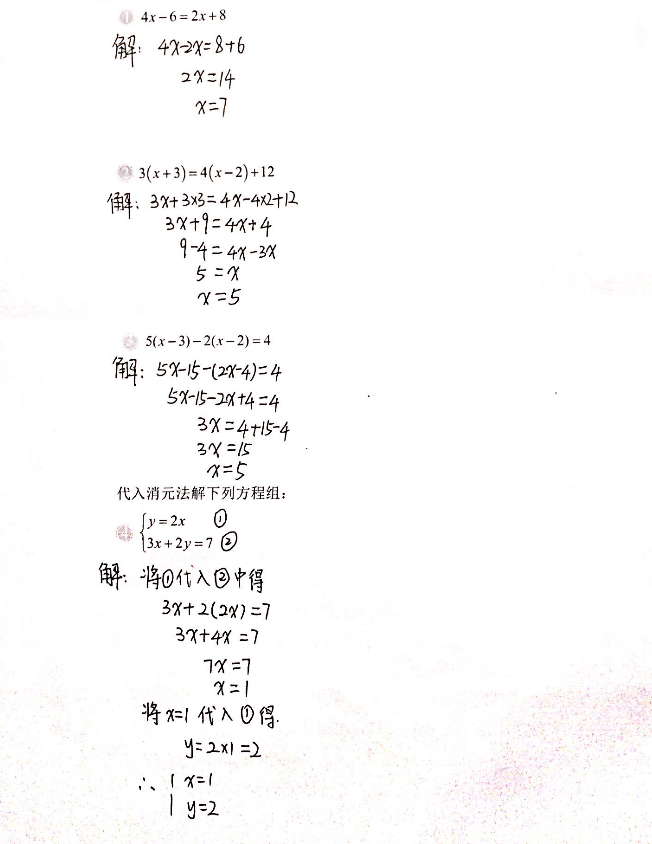 ① 4x-6=2x+8
解: 4x-2x=8+6
2x=14
x=7
② 3(x+3)=4(x-2)+12
解: 3x+3×3=4x-4×2+12
3x+9=4x+4
9-4=4x-3x
5=x
x=5
③ 5(x-3)-2(x-2)=4
解: 5x-15-(2x-4)=4
5x-15-2x+4=4
3x=4+15-4
3x=15
x=5
代入消元法解下列方程组:
④ {y=2x ①
3x+2y=7 ②
解: 将①代入②中得
3x+2(2x)=7
3x+4x=7
7x=7
x=1
将x=1代入①得.
y=2×1=2
∴ { x=1
y=2